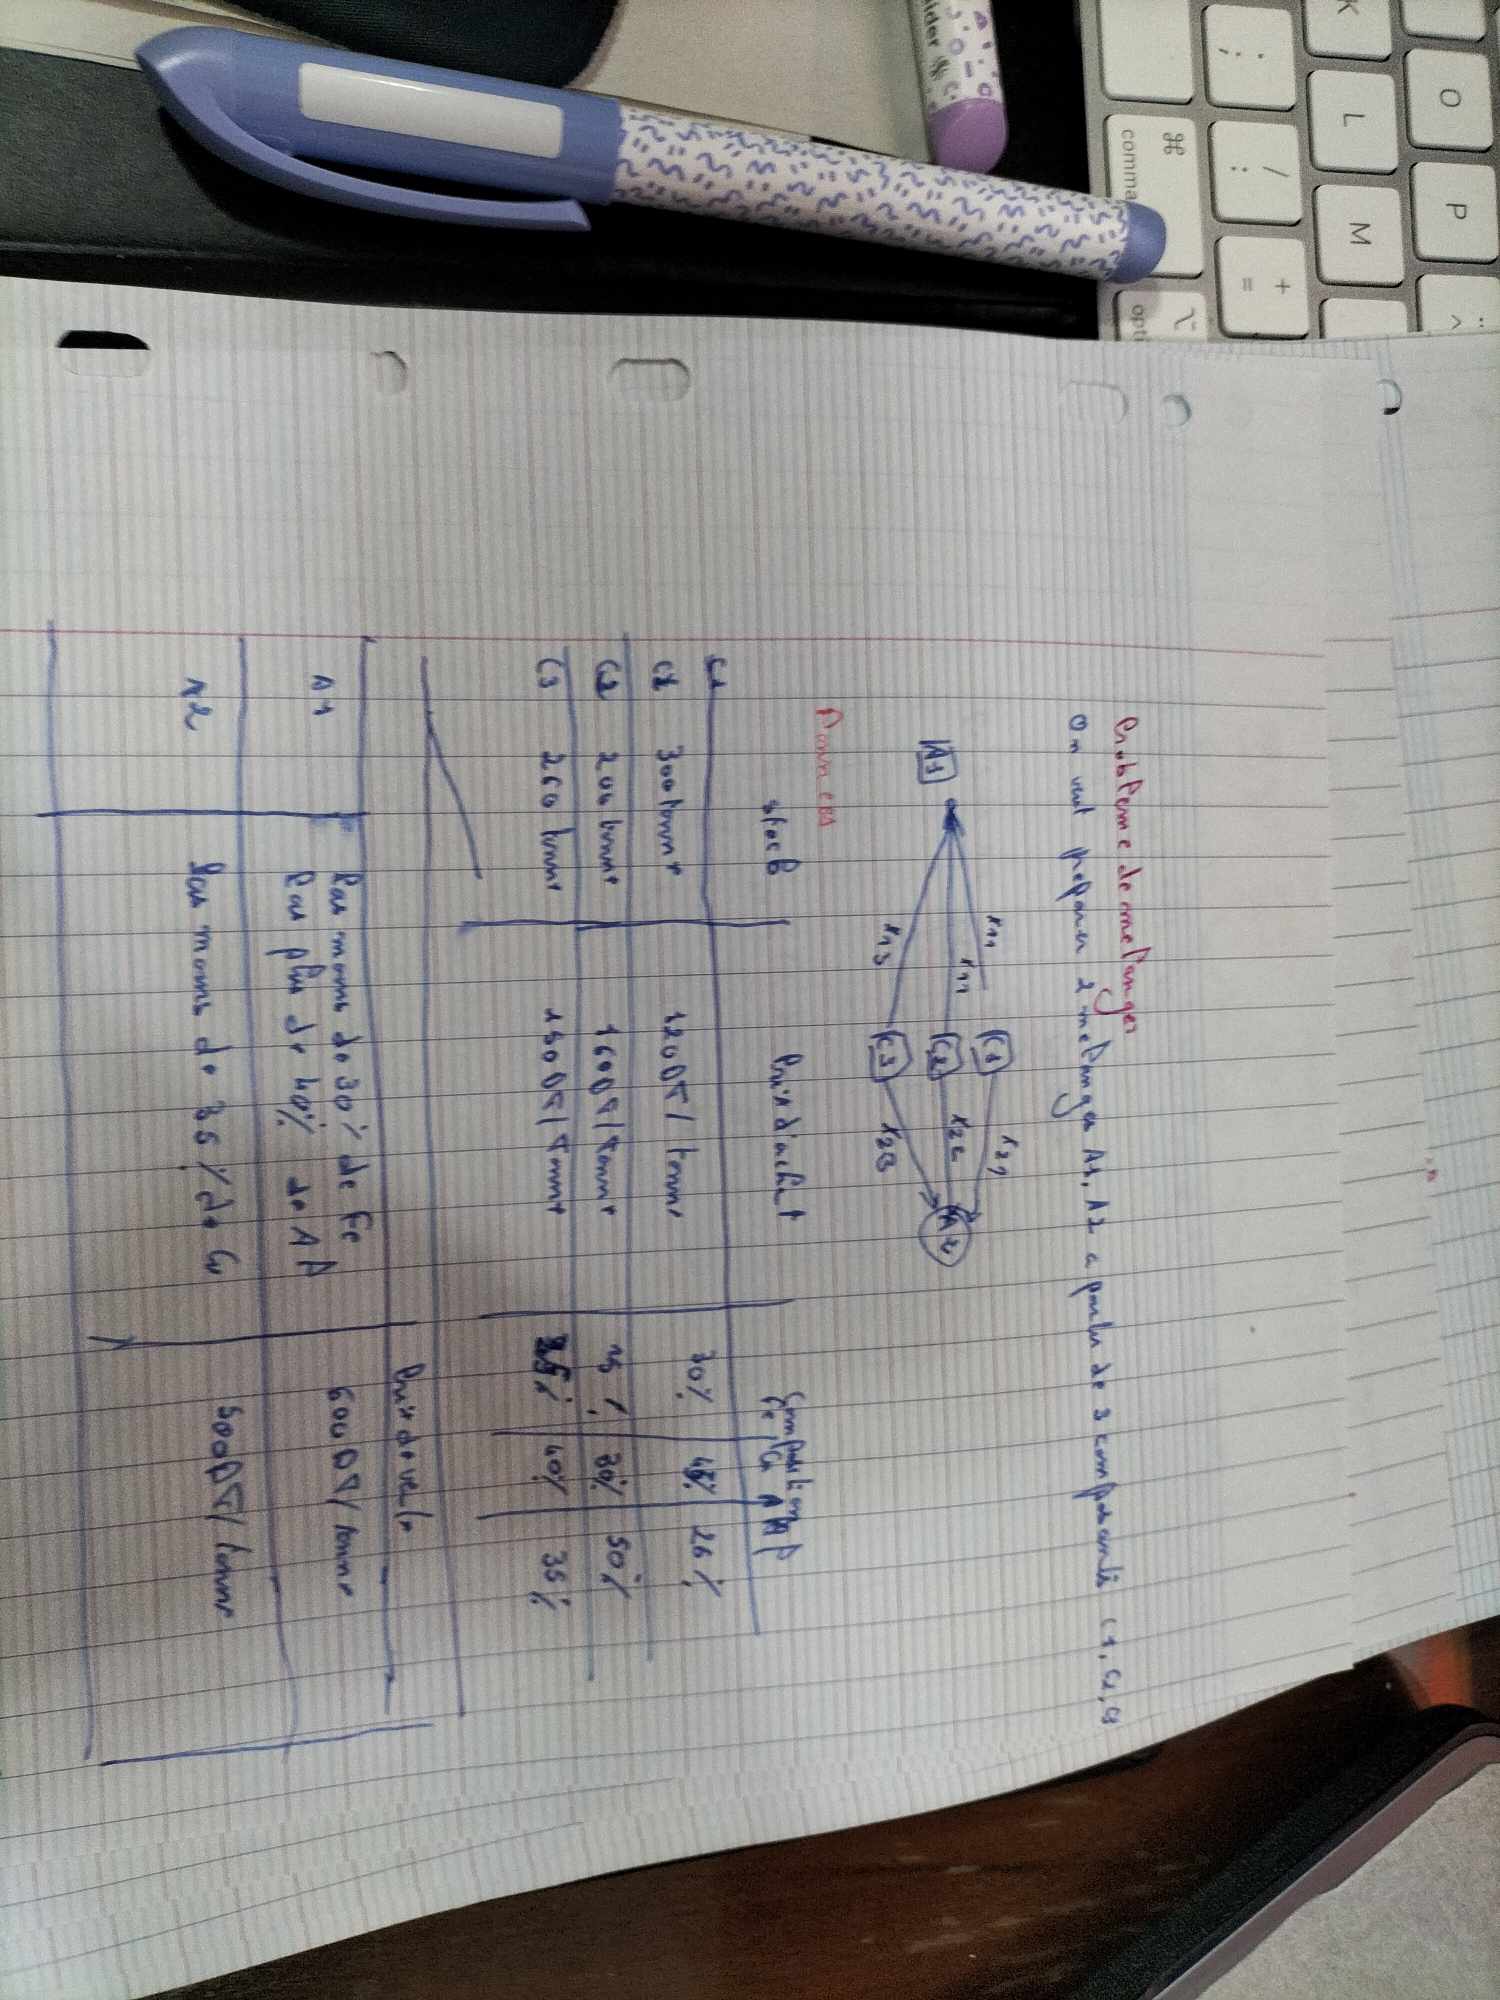 O P
K L M
; / +
: =
⌘ ⌥
comma opti
Probleme de melanges
On veut preparer 2 melanges A1, A2 a partir de 3 composants C1, C2, C3
x11 C1 x21
A1 x11 C2 x22 A2
x13 C3 x23
Donnees
stock Prix d'achat Composition
Fe Cu Al
C1
C1 300 tonne 120DT/ tonne 30% 45% 26%
C2 200 tonne 160DT/ tonne 30% 50%
C3 260 tonne 150DT/ tonne 25% 40% 35%
Prix de vente
A1 Pas moins de 30% de Fe 600DT/ tonne
Pas plus de 40% de Al
A2 Pas moins de 35% de Cu 500DT/ tonne